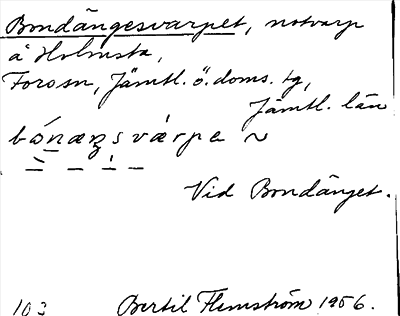 Bondängesvarpet, notvarp
å Holmsta,
Forosn, Jämtl. ö. doms. tg,
Jämtl. län
bónæŋsvárpe ~
Vid Bondänget.
103 Bertil Flemström 1956.